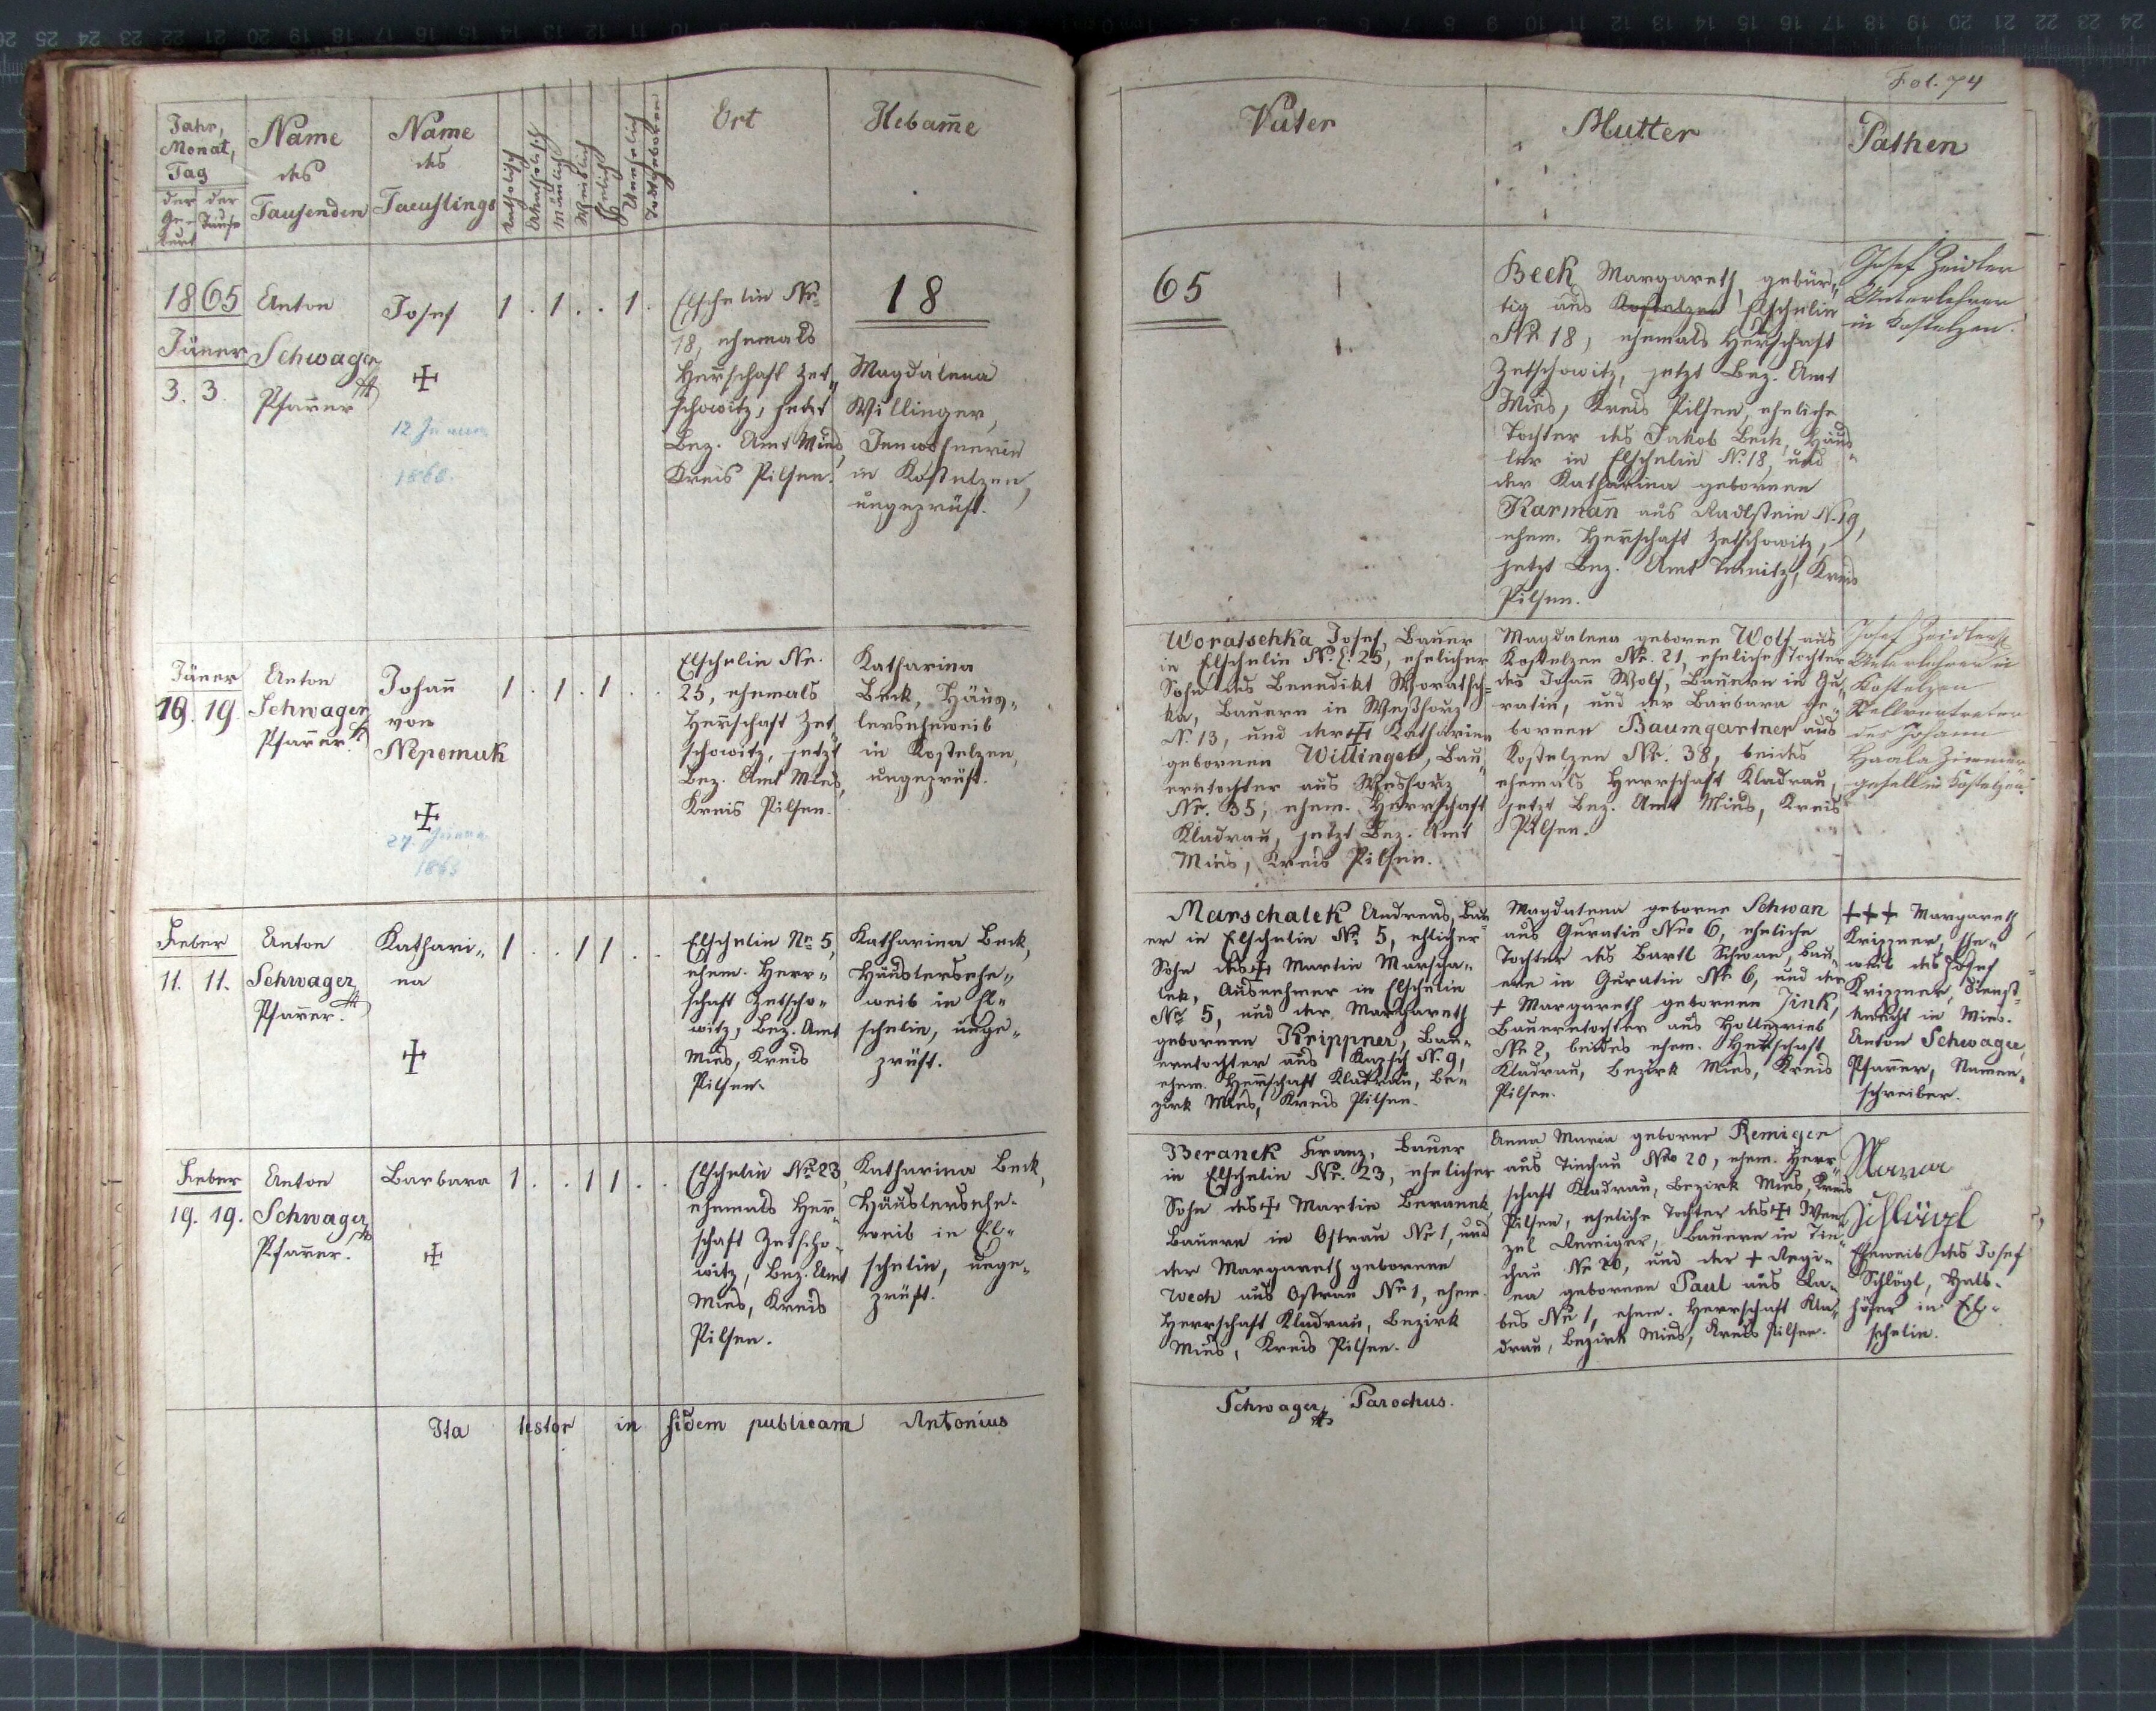 Fol. 74
Jahr,
Monat,
Tag
der Ge-
burt
der
Taufe
Name
des
Taufenden
Name
des
Taeuflings
Katholisch
Akatholisch
Mänlich
Weiblich
Ehelich
Unehelich
Todtgeboren
Ort
Hebam̄e
Vater
Mutter
Pathen
1865
Jäner
3. 3.
Anton
Schwager
Pfarrer
Josef
12. Jänner
1 . 1 . . 1 .
Elschelin Nr.
18, ehemals
Herrschaft Zet„
schowitz, jetzt
Bez. Amt Mies,
Kreis Pilsen.
18
Magdalena
Willinger,
Inwohnerin
in Kostelzen,
ungeprüft.
65
Beck Margareth, gebür„
tig aus Kostelzen Elschelin
Nr. 18, ehemals Herrschaft
Zetschowitz, jetzt Bez. Amt
Mies, Kreis Pilsen, eheliche
Tochter des Jakob Beck, Häus„
ler in Elschelin N. 18, und
der Katharina gebornen
Karman̄ aus Radlstein N. 19,
ehem. Herrschaft Zetschowitz,
jetzt Bez. Amt Teinitz, Kreis
Pilsen.
Josef Zeidler
Unterlehrer
in Kostelzen.
Jäner
19. 19.
Anton
Schwager
Pfarrer.
Johan̄
von
Nepomuk
27. Jänner
1865
1 . 1 . 1 . .
Elschelin Nr.
25, ehemals
Herrschaft Zet„
schowitz, jetzt
Bez. Amt Mies,
Kreis Pilsen.
Katharina
Beck, Häus„
lerseheweib
in Kostelzen,
ungeprüft.
Woratschka Josef, Bauer
in Elschelin N. C. 25, ehelicher
Sohn des Benedikt Woratsch„
ka, Bauern in Weshorz
N. 13, und der + Katharina
gebornen Willinger, Bau„
erntochter aus Weshorz
Nr. 35, ehem. Herrschaft
Kladrau, jetzt Bez. Amt
Mies, Kreis Pilsen.
Magdalena geborne Wolf aus
Kostelzen Nr. 21, eheliche Tochter
des Johan̄ Wolf, Bauern in Gu„
ratin, und der Barbara ge„
bornen Baumgartner aus
Kostelzen Nr. 38, beides
ehemals Herrschaft Kladrau,
jetzt Bez. Amt Mies, Kreis
Pilsen.
Josef Zeidler
Unterlehrer in
Kostelzen
Stellvertreter
des Johann
Haala Zimmer
gesell in Kostelzen.
Feber
11. 11.
Anton
Schwager
Pfarrer.
Kathari„
na
1 . . 1 1 . .
Elschelin Nr. 5,
ehem. Herr„
schaft Zetscho„
witz, Bez. Amt
Mies, Kreis
Pilsen.
Katharina Beck,
Häuslersehe„
weib in El„
schelin, unge„
prüft.
Marschalek Andreas, Bau„
er in Elschelin Nr. 5, ehlicher
Sohn des + Martin Marscha„
lek, Ausnehmer in Elschelin
Nr. 5, und der Margareth
gebornen Krippner, Bau„
erntochter aus N. 9,
ehem. Herrschaft Kladrau, Be„
zirk Mies, Kreis Pilsen.
Magdalena geborne Schwan
aus Guratin Nro 6, eheliche
Tochter des Bartl Schwan, Bau„
ern in Guratin Nr. 6, und der
+ Margareth gebornen Jink,
Bauerntochter aus Hollezrieb
Nr. 2, beides ehem. Herrschaft
Kladrau, Bezirk Mies, Kreis
Pilsen.
+++ Margareth
Krippner, Ehe„
weib des Josef
Krippner, Dienst„
knecht in Mies.
Anton Schwager,
Pfarrer, Namen„
schreiber.
Feber
19. 19.
Anton
Schwager
Pfarrer.
Barbara
1 . . 1 1 . .
Elschelin Nr. 23,
ehemals Herr„
schaft Zetscho„
witz, Bez. Amt
Mies, Kreis
Pilsen.
Katharina Beck,
Häuslersehe„
weib in El„
schelin, unge„
prüft.
Beranek Franz, Bauer
in Elschelin Nr. 23, ehelicher
Sohn des + Martin Beranek,
Bauern in Ostrau Nr. 1, und
der Margareth gebornen
Wech aus Ostrau Nr. 1, ehem.
Herrschaft Kladrau, Bezirk
Mies, Kreis Pilsen.
Anna Maria geborne Remiger
aus Tinchau Nro 20, ehem. Herr„
schaft Kladrau, Bezirk Mies, Kreis
Pilsen, eheliche Tochter des + Wen„
zel Remiger, Bauern in Tin„
chau Nr. 20, und der + Regi„
na gebornen Paul aus La„
bes Nr. 1, ehem. Herrschaft Kla„
drau, Bezirk Mies, Kreis Pilsen.
Eheweib des Josef
Schlögl, Halb„
höfner in El„
schelin.
Ita testor in fidem publicam Antonius
Schwager, Parochus.